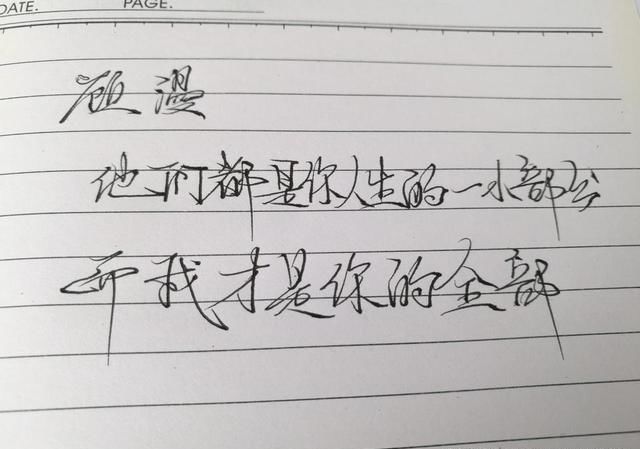 DATE. PAGE.
顾漫
他们都是你人生的一小部分
而我才是你的全部